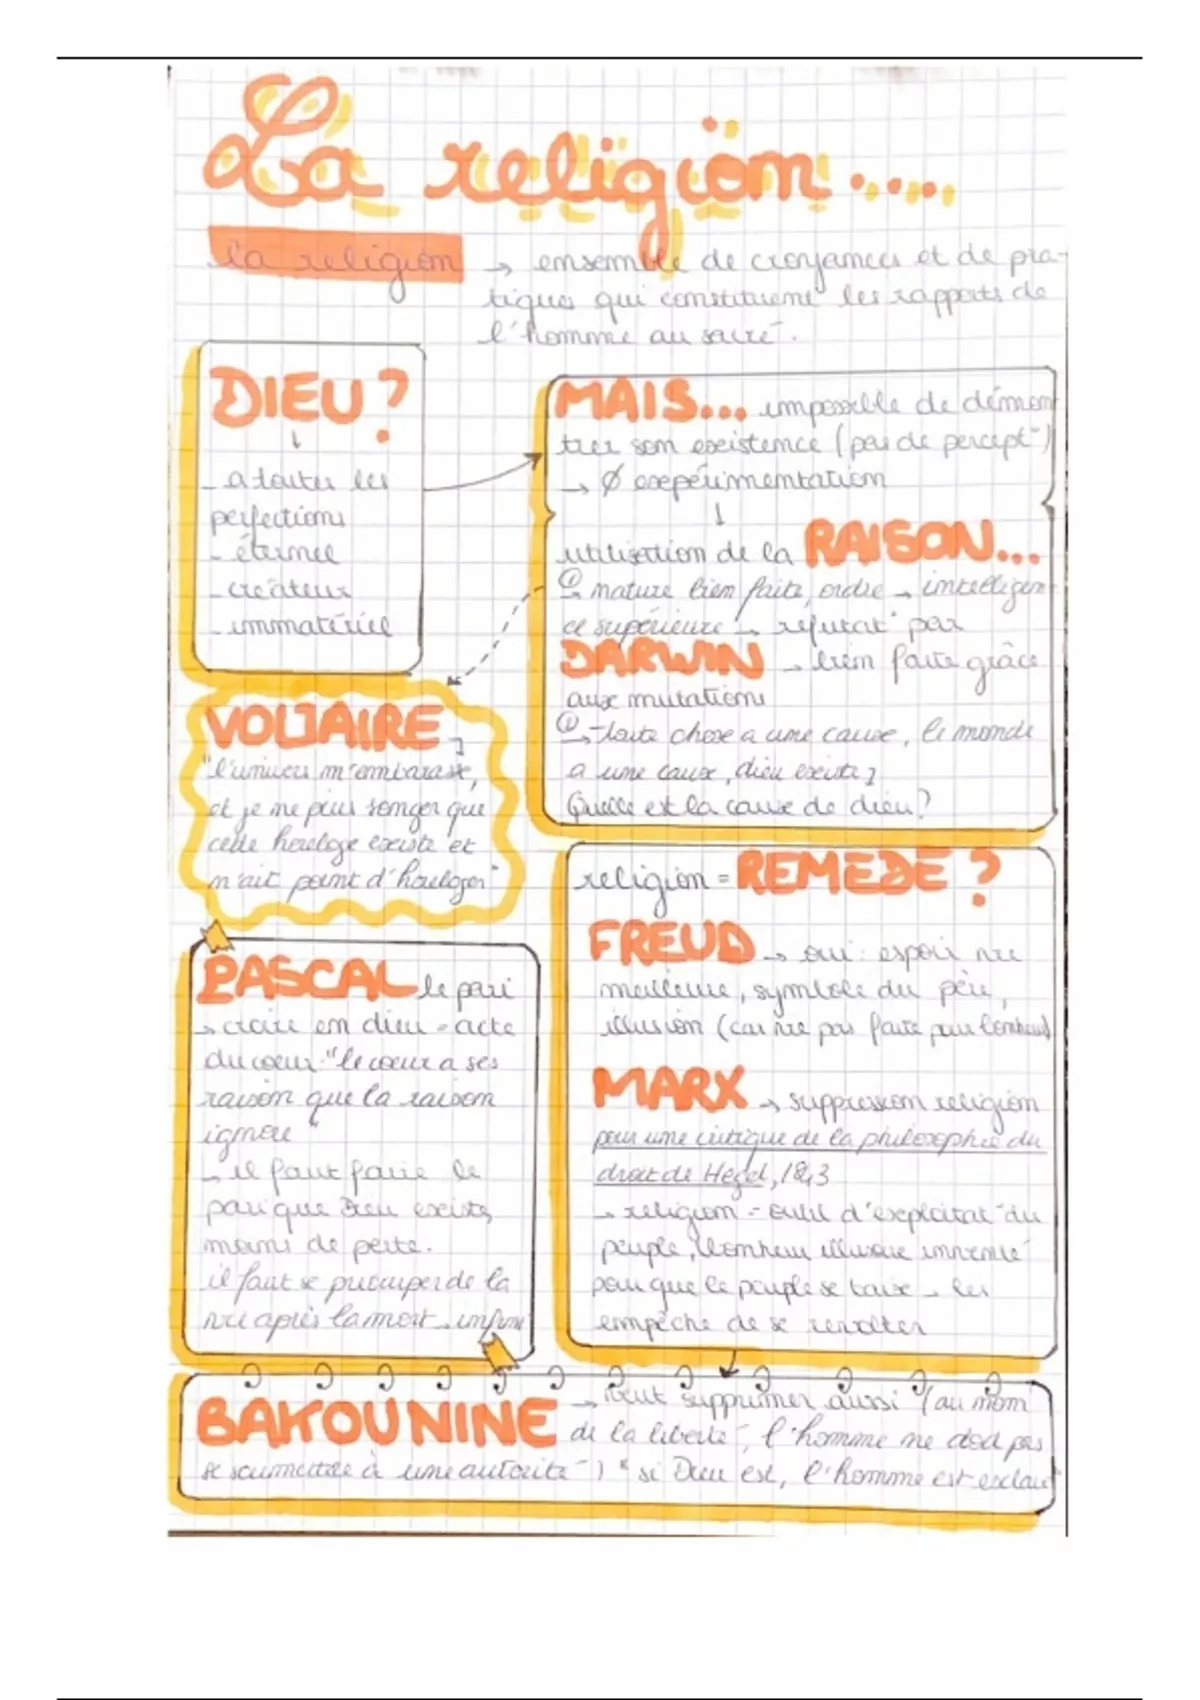 La religion.....
la religion → ensemble de croyances et de pra-
tiques qui constituent les rapports de
l'homme au sacré.
DIEU ?
↓
- a toutes les
perfections
- éternel
- créateur
- immatériel
MAIS... impossible de démon
trer son existence (pas de percept°)
→ Ø expérimentation
↓
utilisation de la RAISON...
① nature bien faite, ordre → intelligen-
ce supérieure → réfutat° par
DARWIN → bien faite grâce
aux mutations
① → toute chose a une cause, le monde
a une cause, dieu existe ]
Quelle est la cause de dieu ?
VOLTAIRE
"l'univers m'embarasse,
et je ne puis songer que
cette horloge existe et
n'ait point d'horloger"
PASCAL le pari
→ croire en dieu = acte
du coeur : "le coeur a ses
raison que la raison
ignore"
→ il faut faire le
pari que Dieu existe,
moins de perte.
il faut se préocuper de la
vie après la mort → infini
religion = REMEDE ?
FREUD → oui : espoir vie
meilleure, symbole du père,
illusion (car vie pas faite pour bonheur)
MARX → suppression religion
pour une critique de la philosophie du
droit de Hegel, 1843
→ religion = outil d'exploitat° du
peuple, bonheur illusoire inventé
pour que le peuple se taise → les
empêche de se révolter
BAKOUNINE → veut supprimer aussi (au nom
de la liberté, l'homme ne doit pas
se soumettre à une autorité) "si Dieu est, l'homme est esclave"